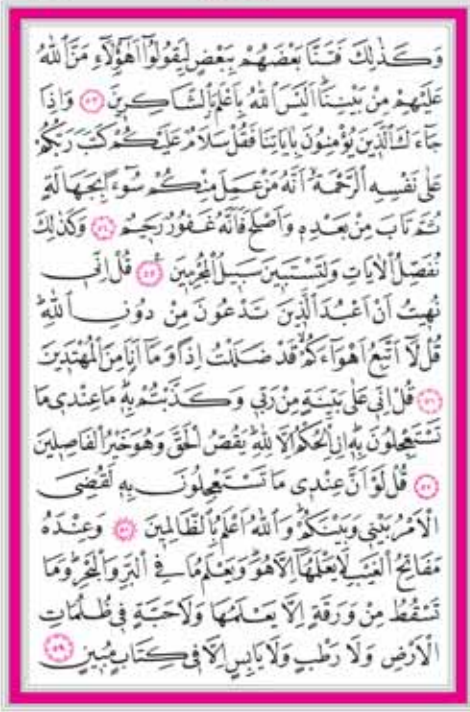 وَكَذٰلِكَ فَتَنَّا بَعْضَهُمْ بِبَعْضٍ لِيَقُولُٓوا اَهٰٓؤُ۬لَٓاءِ مَنَّ اللّٰهُ
عَلَيْهِمْ مِنْ بَيْنِنَاۜ اَلَيْسَ اللّٰهُ بِاَعْلَمَ بِالشَّاكِرٖينَ ﴿٥٣﴾ وَاِذَا
جَٓاءَكَ الَّذٖينَ يُؤْمِنُونَ بِاٰيَاتِنَا فَقُلْ سَلَامٌ عَلَيْكُمْ كَتَبَ رَبُّكُمْ
عَلٰى نَفْسِهِ الرَّحْمَةَۙ اَنَّهُ مَنْ عَمِلَ مِنْكُمْ سُٓوءاً بِجَهَالَةٍ
ثُمَّ تَابَ مِنْ بَعْدِهٖ وَاَصْلَحَ فَاَنَّهُ غَفُورٌ رَحٖيمٌ ﴿٥٤﴾ وَكَذٰلِكَ
نُفَصِّلُ الْاٰيَاتِ وَلِتَسْتَبٖينَ سَبٖيلُ الْمُجْرِمٖينَ ﴿٥٥﴾ قُلْ اِنّٖي
نُهٖيتُ اَنْ اَعْبُدَ الَّذٖينَ تَدْعُونَ مِنْ دُونِ اللّٰهِۜ
قُلْ لَٓا اَتَّبِعُ اَهْوَٓاءَكُمْۙ قَدْ ضَلَلْتُ اِذاً وَمَٓا اَنَا۬ مِنَ الْمُهْتَدٖينَ
﴿٥٦﴾ قُلْ اِنّٖي عَلٰى بَيِّنَةٍ مِنْ رَبّٖي وَكَذَّبْتُمْ بِهٖۜ مَا عِنْدٖي مَا
تَسْتَعْجِلُونَ بِهٖۜ اِنِ الْحُكْمُ اِلَّا لِلّٰهِۜ يَقُصُّ الْحَقَّ وَهُوَ خَيْرُ الْفَاصِلٖينَ
﴿٥٧﴾ قُلْ لَوْ اَنَّ عِنْدٖي مَا تَسْتَعْجِلُونَ بِهٖ لَقُضِيَ
الْاَمْرُ بَيْنٖي وَبَيْنَكُمْۜ وَاللّٰهُ اَعْلَمُ بِالظَّالِمٖينَ ﴿٥٨﴾ وَعِنْدَهُ
مَفَاتِحُ الْغَيْبِ لَا يَعْلَمُهَٓا اِلَّا هُوَۜ وَيَعْلَمُ مَا فِي الْبَرِّ وَالْبَحْرِۜ وَمَا
تَسْقُطُ مِنْ وَرَقَةٍ اِلَّا يَعْلَمُهَا وَلَا حَبَّةٍ فٖي ظُلُمَاتِ
الْاَرْضِ وَلَا رَطْبٍ وَلَا يَابِسٍ اِلَّا فٖي كِتَابٍ مُبٖينٍ ﴿٥٩﴾